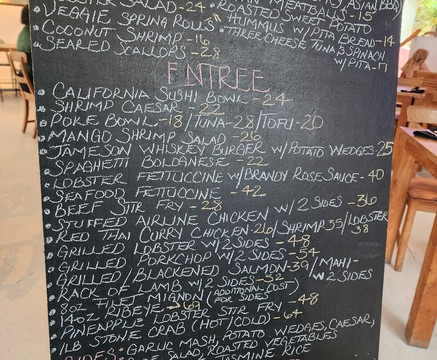 LOBSTER SALAD-24 • ROASTED SWEET POTATO
VEGGIE SPRING ROLLS • HUMMUS W/PITA BREAD-14
COCONUT SHRIMP-16 • THREE CHEESE TUNA & SPINACH
SEARED SCALLOPS-28 W/PITA-17
ENTREE
CALIFORNIA SUSHI BOWL -24
SHRIMP CAESAR -22
POKE BOWL -18/TUNA-28/TOFU-20
MANGO SHRIMP SALAD -26
JAMESON WHISKEY BURGER W/POTATO WEDGES-25
SPAGHETTI BOLOGNESE -22
LOBSTER FETTUCCINE W/BRANDY ROSE SAUCE-40
SEAFOOD FETTUCCINE -42
BEEF STIR FRY -28
STUFFED AIRLINE CHICKEN W/2 SIDES -36
RED THAI CURRY CHICKEN-26/SHRIMP 35/LOBSTER 38
GRILLED LOBSTER W/2 SIDES -48
GRILLED PORKCHOP W/2 SIDES -34
GRILLED/BLACKENED SALMON-39/MAHI- W/2 SIDES
RACK OF LAMB W/2 SIDES-52
8oz FILET MIGNON (ADDITIONAL COST FOR SIDES) -48
14oz RIBEYE
PINEAPPLE LOBSTER STIR FRY
1LB STONE CRAB (HOT/COLD) -64
GARLIC MASH, POTATO WEDGES, CAESAR,
SALAD, ROASTED VEGETABLES
JASMINE RICE